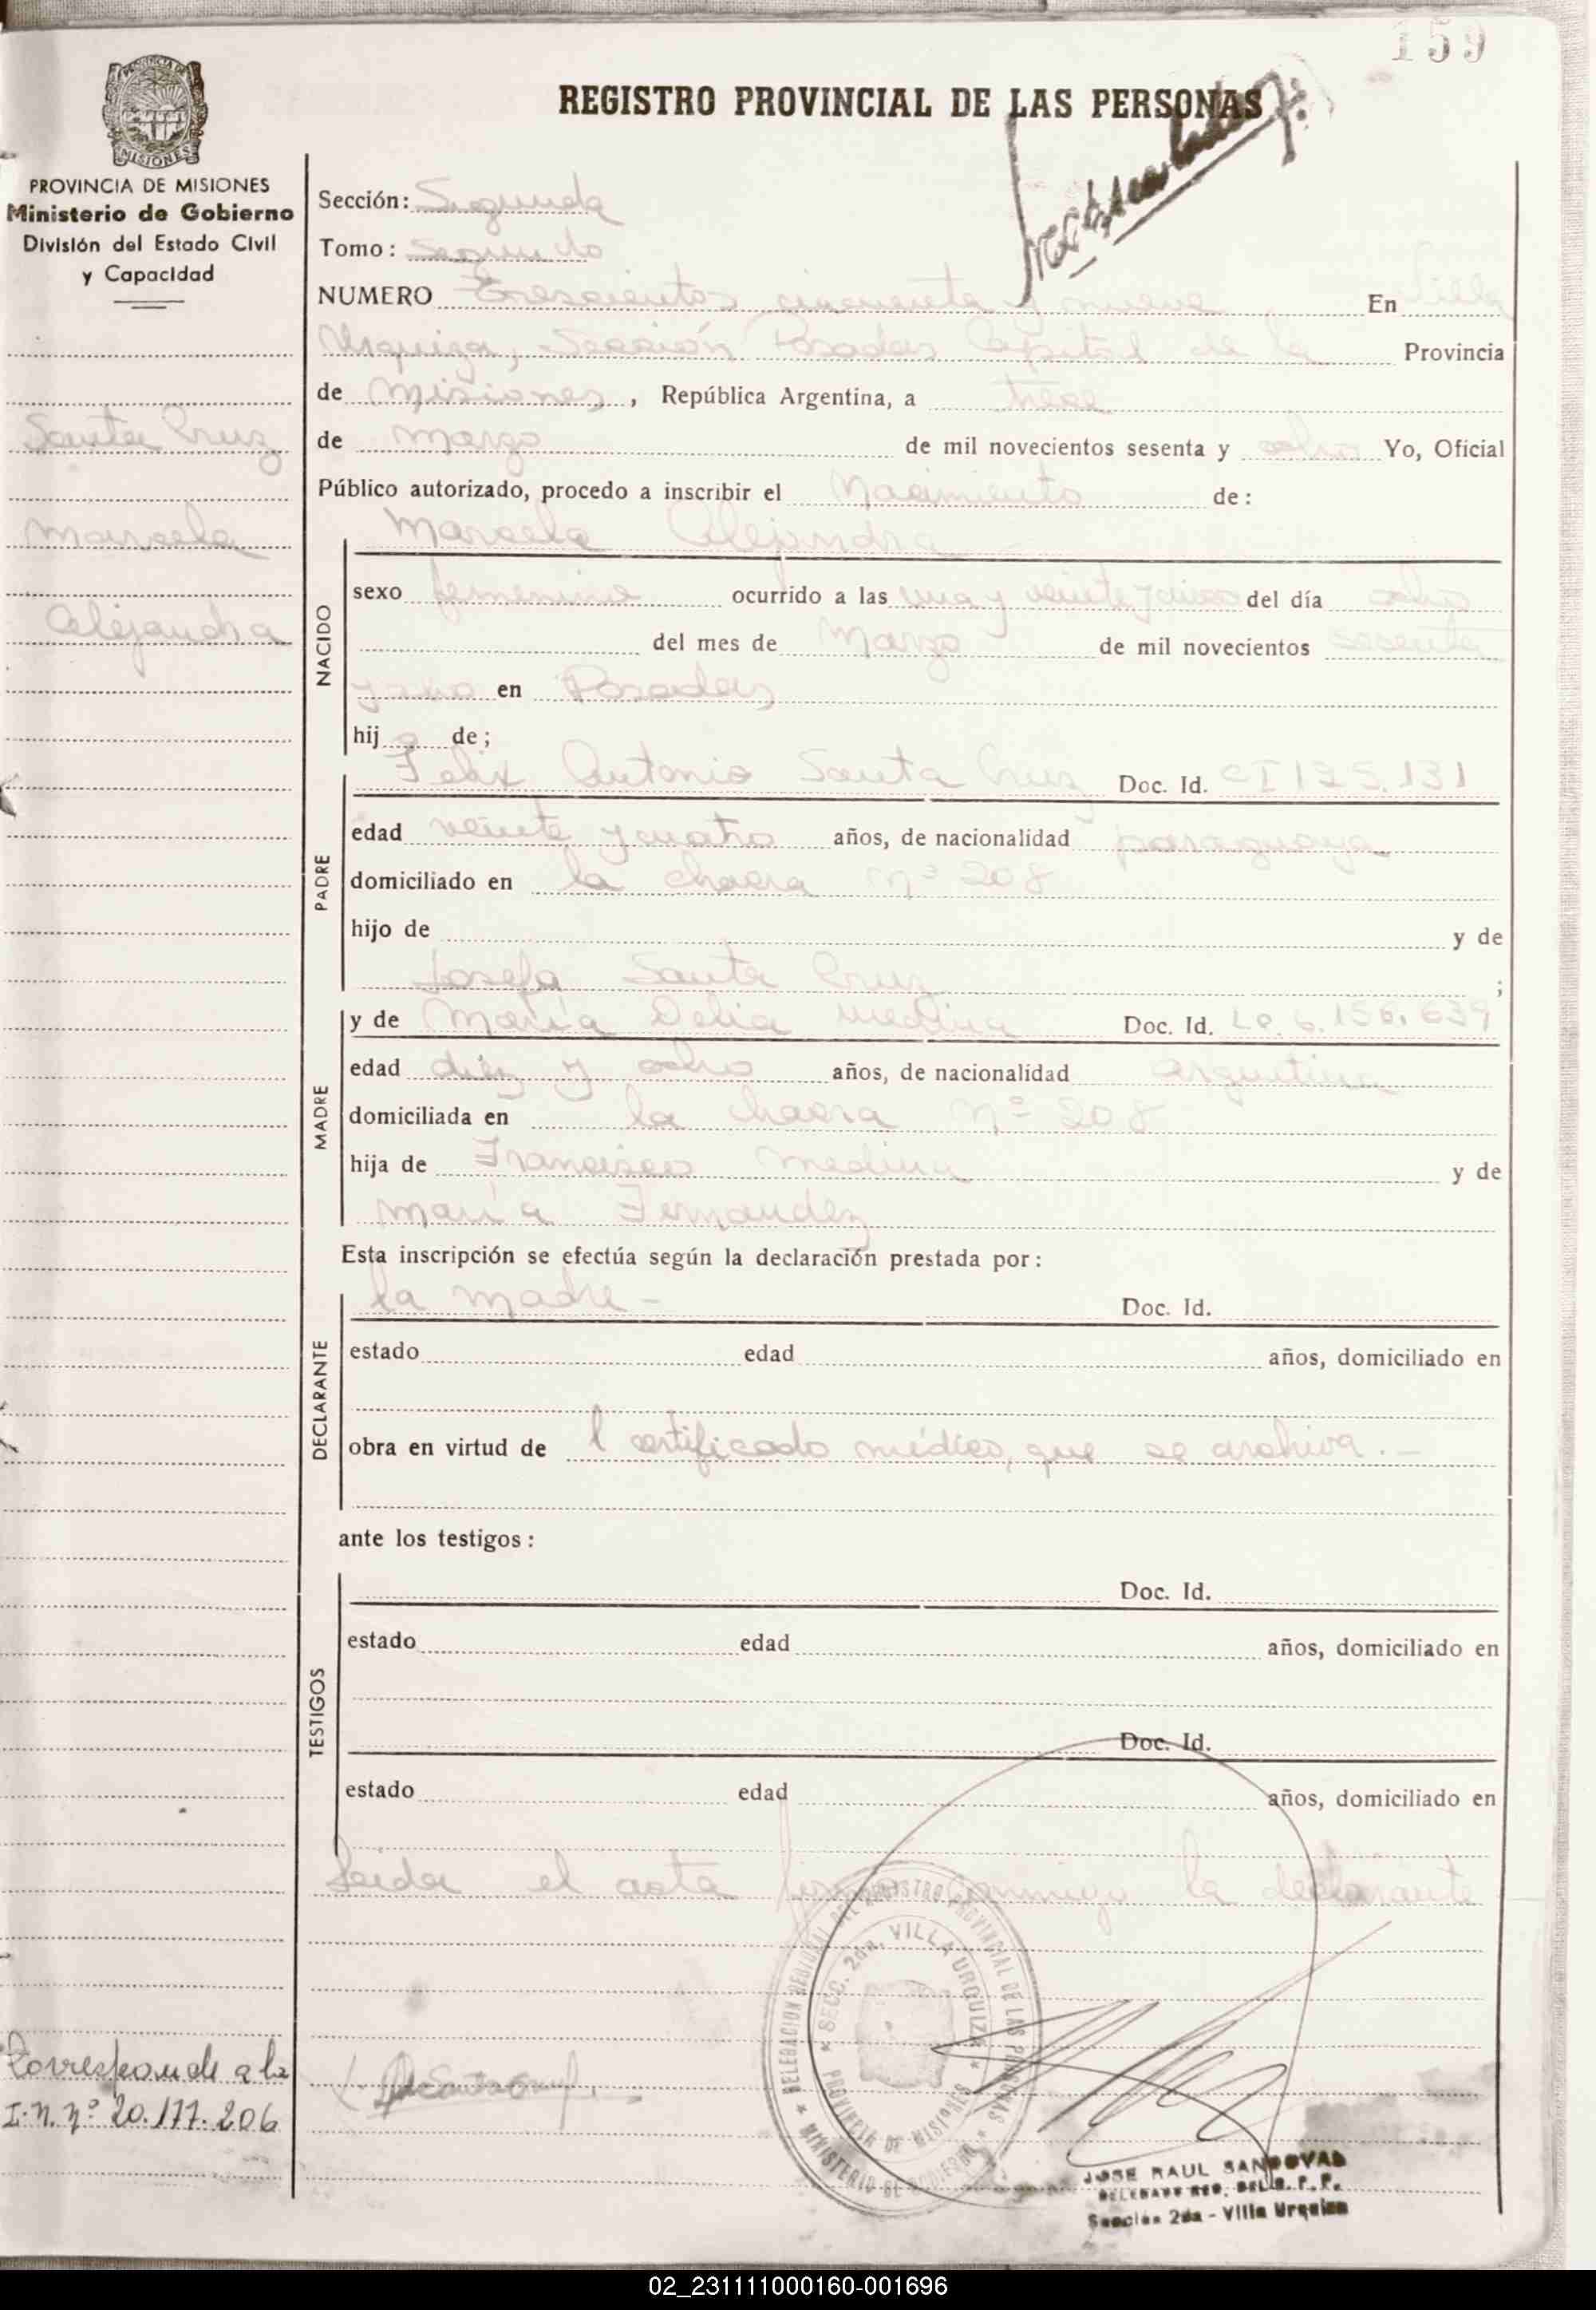 159
REGISTRO PROVINCIAL DE LAS PERSONAS
MISIONES
PROVINCIA DE MISIONES
Ministerio de Gobierno
División del Estado Civil
y Capacidad
Santa Cruz
Marcela
Alejandra
Sección: Segunda
Tomo: Segundo
NUMERO Trescientos cincuenta y nueve En Villa
Urquiza, Sección Posadas Capital de la Provincia
de Misiones, República Argentina, a trece
de Marzo de mil novecientos sesenta y ocho Yo, Oficial
Público autorizado, procedo a inscribir el Nacimiento de:
NACIDO
Marcela Alejandra
sexo femenino ocurrido a las una y veinte y cinco del día ocho
del mes de Marzo de mil novecientos sesenta
y ocho en Posadas
hija de;
PADRE
Felix Antonio Santa Cruz Doc. Id. CI 175.131
edad veinte y cuatro años, de nacionalidad paraguaya
domiciliado en la chacra nº 208
hijo de y de
Josefa Santa Cruz ;
MADRE
y de María Delia Medina Doc. Id. LC. 6.156.639
edad diez y ocho años, de nacionalidad argentina
domiciliada en la chacra nº 208
hija de Francisco Medina y de
María Fernandez
Esta inscripción se efectúa según la declaración prestada por:
DECLARANTE
la madre - Doc. Id.
estado edad años, domiciliado en
obra en virtud de l certificado médico, que se archiva.-
ante los testigos:
TESTIGOS
Doc. Id.
estado edad años, domiciliado en
Doc. Id.
estado edad años, domiciliado en
Leida el acta firma conmigo la declarante
DELEGACION REGIONAL DEL REGISTRO PROVINCIAL DE LAS PERSONAS
MINISTERIO DE GOBIERNO
SECC. 2da. VILLA URQUIZA
PROVINCIA DE MISIONES
Corresponde a la
I.N. nº 20.177.206
JOSE RAUL SANDOVAL
DELEGADO REG. DEL R. P. P.
Sección 2da - Villa Urquiza
02_231111000160-001696